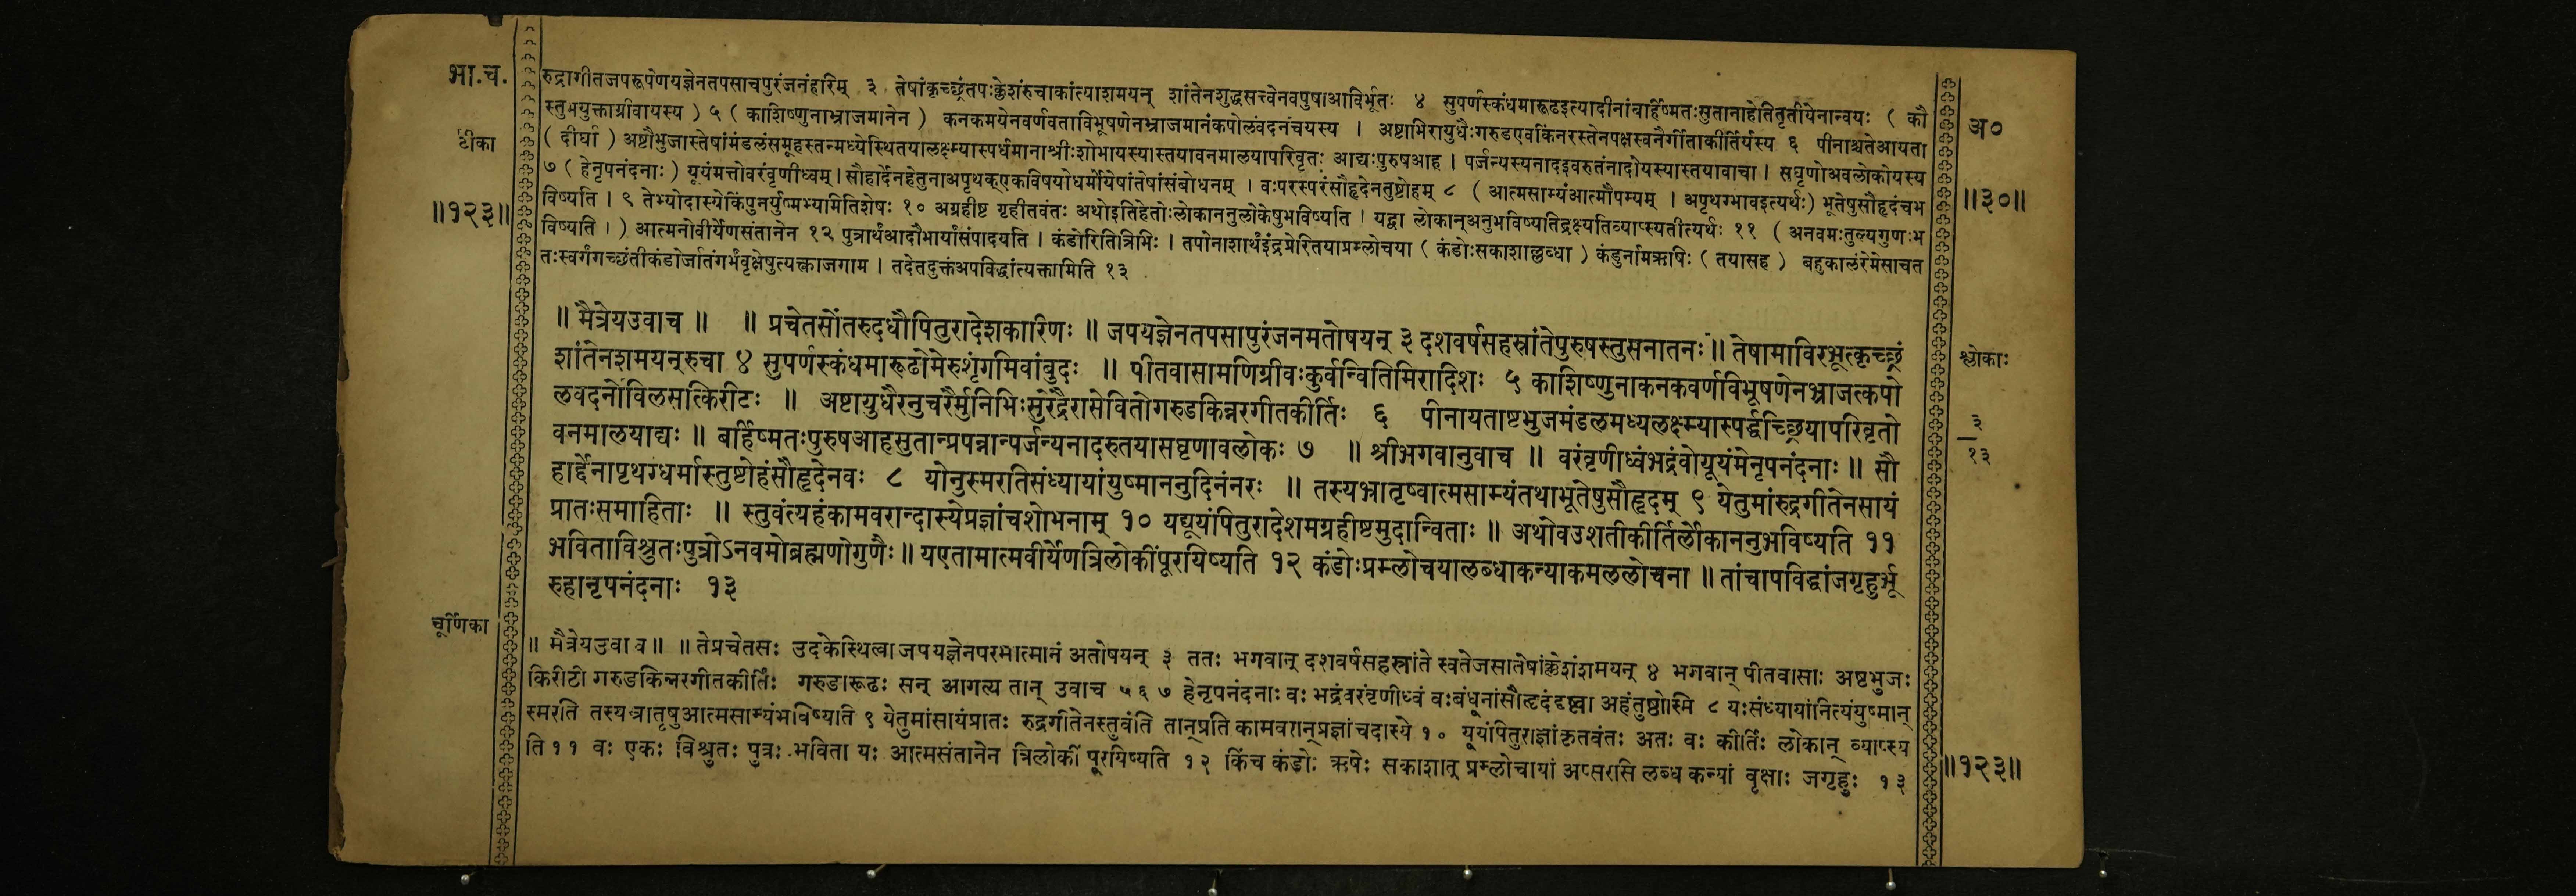 भा.च.
रुद्रागीतजपरूपेणयज्ञेनतपसाचपुरंजनंहरिम् ३ तेषांकृच्छ्रंतपःक्लेशंरुचाकांत्याशमयन् शांतेनशुद्धसत्त्वेनवपुषाआविर्भूतः ४ सुपर्णस्कंधमारूढइत्यादीनांबार्हिष्मतःसुतानाहेतितृतीयेनान्वयः ( कौ
स्तुभयुक्ताग्रीवायस्य ) ५ ( काशिष्णुनाभ्राजमानेन ) कनकमयेनवर्णवताविभूषणेनभ्राजमानंकपोलंवदनंचयस्य । अष्टाभिरायुधैःगरुडएवकिंनरस्तेनपक्षस्वनैर्गीताकीर्तिर्यस्य ६ पीनाश्चतेआयता
अ०
टीका
( दीर्घा ) अष्टौभुजास्तेषांमंडलंसमूहस्तन्मध्येस्थितयालक्ष्म्यास्पर्धमानाश्रीःशोभायस्यास्तयावनमालयापरिवृतः आद्यःपुरुषआह । पर्जन्यस्यनादइवरुतंनादोयस्यास्तयावाचा । सघृणोअवलोकोयस्य
७ ( हेनृपनंदनाः ) यूयंमत्तोवरंवृणीध्वम् । सौहार्देनहेतुनाअपृथक्एकविषयोधर्मोयेषांतेषांसंबोधनम् । वःपरस्परंसौहृदेनतुष्टोहम् ८ ( आत्मसाम्यंआत्मौपम्यम् । अपृथग्भावइत्यर्थः) भूतेषुसौहृदंचभ
॥१२३॥
॥३०॥
विष्यति । ९ तेभ्योदास्येकिंपुनर्युष्मभ्यामितिशेषः १० अग्रहीष्ट गृहीतवंतः अथोइतिहेतोःलोकाननुलोकेषुभविष्यति । यद्वा लोकान्अनुभविष्यतिद्रक्ष्यतिव्याप्स्यतीत्यर्थः ११ ( अनवमःतुल्यगुणःभ
विष्यति । ) आत्मनोवीर्येणसंतानेन १२ पुत्रार्थंआदौभार्यांसंपादयति । कंडोरितित्रिभिः । तपोनाशार्थंइंद्रप्रेरितयाप्रम्लोचया ( कंडोःसकाशाल्लब्धा ) कंडुर्नामऋषिः ( तयासह ) बहुकालंरेमेसाचत
तःस्वर्गंगच्छंतीकंडोर्जातंगर्भंवृक्षेषुत्यक्त्वाजगाम । तदेतदुक्तंअपविद्धांत्यक्तामिति १३
॥ मैत्रेयउवाच ॥ ॥ प्रचेतसोंतरुदधौपितुरादेशकारिणः ॥ जपयज्ञेनतपसापुरंजनमतोषयन् ३ दशवर्षसहस्रांतेपुरुषस्तुसनातनः ॥ तेषामाविरभूत्कृच्छ्रं
शांतेनशमयन्रुचा ४ सुपर्णस्कंधमारूढोमेरुशृंगमिवांबुदः ॥ पीतवासामणिग्रीवःकुर्वन्वितिमिरादिशः ५ काशिष्णुनाकनकवर्णविभूषणेनभ्राजत्कपो
श्लोकाः
लवदनोविलसत्किरीटः ॥ अष्टायुधैरनुचरैर्मुनिभिःसुरेंद्रैरासेवितोगरुडकिन्नरगीतकीर्तिः ६ पीनायताष्टभुजमंडलमध्यलक्ष्म्यास्पर्द्धच्छ्रियापरिवृतो
३
१३
वनमालयाद्यः ॥ बर्हिष्मतःपुरुषआहसुतान्प्रपन्नान्पर्जन्यनादरुतयासघृणावलोकः ७ ॥ श्रीभगवानुवाच ॥ वरंवृणीध्वंभद्रंवोयूयंमेनृपनंदनाः ॥ सौ
हार्द्देनापृथग्धर्मास्तुष्टोहंसौहृदेनवः ८ योनुस्मरतिसंध्यायांयुष्माननुदिनंनरः ॥ तस्यभ्रातृष्वात्मसाम्यंतथाभूतेषुसौहृदम् ९ येतुमांरुद्रगीतेनसायं
प्रातःसमाहिताः ॥ स्तुवंत्यहंकामवरान्दास्येप्रज्ञांचशोभनाम् १० यद्यूयंपितुरादेशमग्रहीष्टमुदान्विताः ॥ अथोवउशतीकीर्तिर्लोकाननुभविष्यति ११
भविताविश्रुतःपुत्रोऽनवमोब्रह्मणोगुणैः ॥ यएतामात्मवीर्येणत्रिलोकींपूरयिष्यति १२ कंडोःप्रम्लोचयालब्धाकन्याकमललोचना ॥ तांचापविद्धांजगृहुर्भू
रुहानृपनंदनाः १३
चूर्णिका
॥ मैत्रेयउवाच ॥ ॥ तेप्रचेतसः उदकेस्थित्वा जपयज्ञेनपरमात्मानं अतोषयन् ३ ततः भगवान् दशवर्षसहस्रांते स्वतेजसातेषांक्लेशंशमयन् ४ भगवान् पीतवासाः अष्टभुजः
किरीटी गरुडकिन्नरगीतकीर्तिः गरुडारूढः सन् आगत्य तान् उवाच ५ ६ ७ हेनृपनंदनाः वः भद्रंवरंवृणीध्वं वःबंधूनांसौहृदंदृष्ट्वा अहंतुष्टोस्मि ८ यःसंध्यायांनित्यंयुष्मान्
स्मरति तस्यभ्रातृषुआत्मसाम्यंभविष्यति ९ येतुमांसायंप्रातः रुद्रगीतेनस्तुवंति तान्प्रति कामवरान्प्रज्ञांचदास्ये १० यूयंपितुराज्ञांकृतवंतः अतः वः कीर्तिः लोकान् व्याप्स्य
ति ११ वः एकः विश्रुतः पुत्रः भविता यः आत्मसंतानेन त्रिलोकीं पूरयिष्यति १२ किंच कंडोः ऋषेः सकाशात् प्रम्लोचायां अप्सरसि लब्ध कन्यां वृक्षाः जगृहुः १३
॥१२३॥